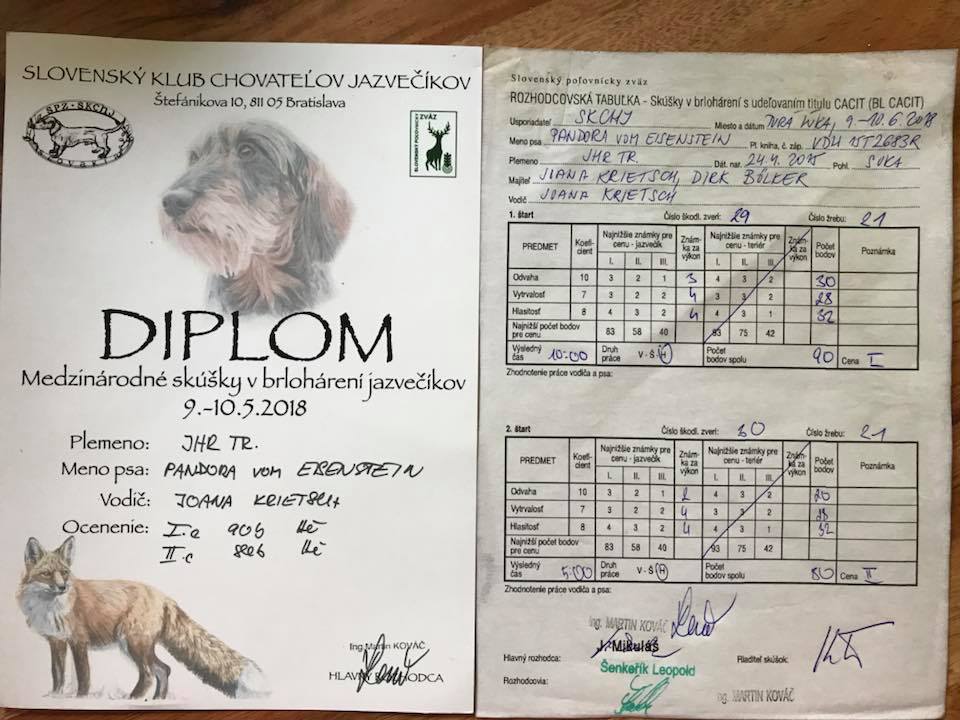 SLOVENSKÝ KLUB CHOVATEĽOV JAZVEČÍKOV
Štefánikova 10, 811 05 Bratislava
SPZ-SKCHJ
SLOVENSKÝ POĽOVNÍCKY ZVÄZ
DIPLOM
Medzinárodné skúšky v brlohárení jazvečíkov
9.-10.5.2018
Plemeno: JHR TR.
Meno psa: PANDORA VOM EISENSTEIN
Vodič: JOANA KRIETSCH
Ocenenie: I.c 90b
II.c 80b
Ing. Martin KOVÁČ
HLAVNÝ ROZHODCA
Slovenský poľovnícky zväz
ROZHODCOVSKÁ TABUĽKA - Skúšky v brlohárení s udeľovaním titulu CACIT (BL CACIT)
Usporiadateľ SKCHJ Miesto a dátum TURÁ LÚKA, 9.-10.6.2018
Meno psa PANDORA VOM EISENSTEIN Pl. kniha, č. záp. VDH 15T2683R
Plemeno JHR TR. Dát. nar. 24.4.2015 Pohl. SUKA
Majiteľ JOANA KRIETSCH, DIRK BÖLKER
Vodič JOANA KRIETSCH
1. štart Číslo škodl. zveri: 29 Číslo žrebu: 21
PREDMET Koeficient Najnižšie známky pre cenu - jazvečík Známka za výkon Najnižšie známky pre cenu - teriér Známka za výkon Počet bodov Poznámka
I. II. III. I. II. III.
Odvaha 10 3 2 1 3 4 3 2 30
Vytrvalosť 7 3 2 2 4 3 3 2 28
Hlasitosť 8 4 3 2 4 4 3 1 32
Najnižší počet bodov pre cenu 83 58 40 93 75 42
Výsledný čas 10:00 Druh práce V - Š - H Počet bodov spolu 90 Cena I
Zhodnotenie práce vodiča a psa:
2. štart Číslo škodl. zveri: 30 Číslo žrebu: 21
PREDMET Koeficient Najnižšie známky pre cenu - jazvečík Známka za výkon Najnižšie známky pre cenu - teriér Známka za výkon Počet bodov Poznámka
I. II. III. I. II. III.
Odvaha 10 3 2 1 2 4 3 2 20
Vytrvalosť 7 3 2 2 4 3 3 2 28
Hlasitosť 8 4 3 2 4 4 3 1 32
Najnižší počet bodov pre cenu 83 58 40 93 75 42
Výsledný čas 5:00 Druh práce V - Š - H Počet bodov spolu 80 Cena II
Zhodnotenie práce vodiča a psa:
Ing. MARTIN KOVÁČ
J. Mikuláš
Hlavný rozhodca: Riaditeľ skúšok:
Šenkeřík Leopold
Rozhodcovia:
Ing. MARTIN KOVÁČ